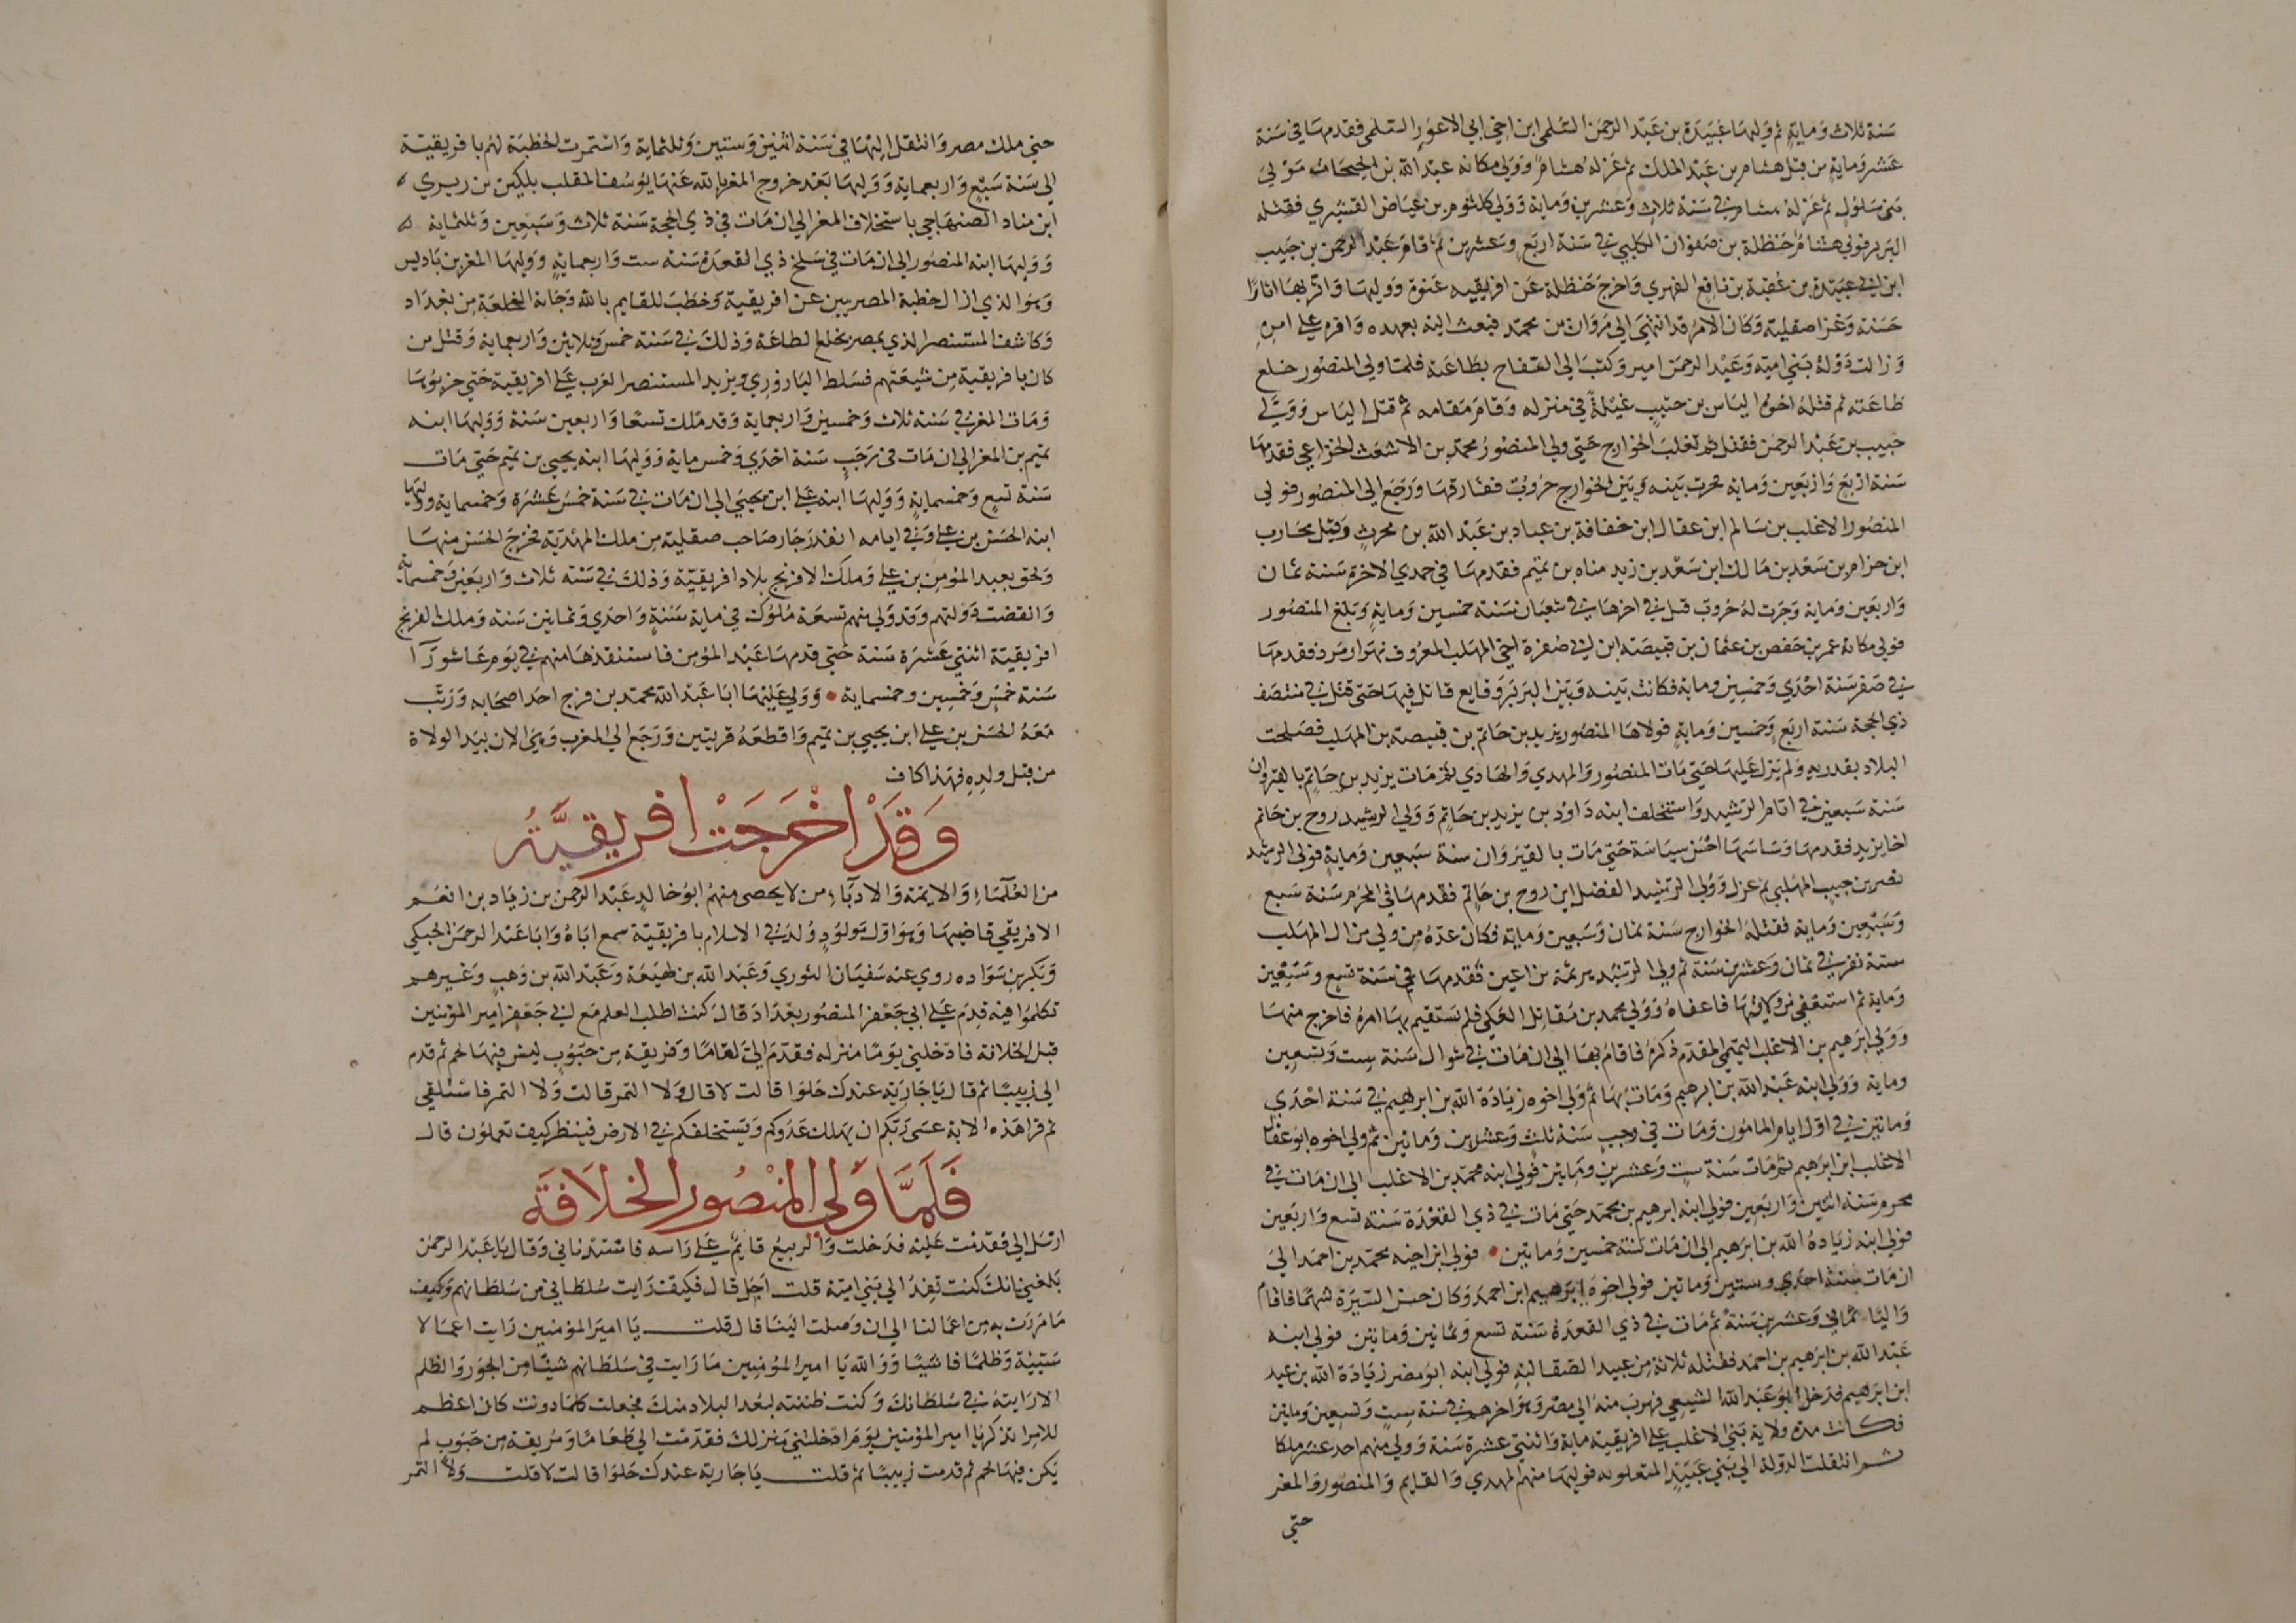 سنة ثلاث وماية ثم وليها عبيدة بن عبد الرحمن السلمي ابن اخي ابي الاعور السلمي فقدمها في سنة
عشر وماية من قبل هشام بن عبد الملك ثم عزله هشام وولي مكانه عبد الله بن الحبحاب مولي
بني سلول ثم عزله هشام في سنة ثلاث وعشرين وماية وولي كلثوم بن عياض القشيري فقتله
البربر فولي هشام حنظلة بن صفوان الكلبي في سنة اربع وعشرين ثم قام عبد الرحمن بن حبيب
ابن ابي عبيدة بن عقبة بن نافع الفهري واخرج حنظلة عن افريقيه عنوة ووليها واثر بها اثارا
حسنة وغزا صقلية وكان الامر قد انتهي الي مروان بن محمد فبعث اليه بعهده واقره علي امره
وزالت دولة بني امية وعبد الرحمن امير وكتب الي السفاح بطاعة فلما ولي المنصور خلع
طاعته ثم قتله اخوه الياس بن حبيب غيلة في منزله وقام مقامه ثم قتل الياس وولي
حبيب بن عبد الرحمن فقتل ثم تغلب الخوارج حتي ولي المنصور محمد بن الاشعث الخزاعي فقدمها
سنة اربع واربعين وماية فجرت بينه وبين الخوارج حروب ففارقها ورجع الي المنصور فولي
المنصور الاغلب بن سالم ابن عقال ابن خفافة بن عباد بن عبد الله بن محرث وقيل محارب
ابن حزام بن سعد بن مالك ابن سعد بن زيد مناه بن تميم فقدمها في جمدي الاخرة سنة ثمان
واربعين وماية وجرت له حروب قتل في اخرها في شعبان سنة خمسين وماية وبلغ المنصور
فولي مكانه عمر بن حفص بن عثمان بن قبيصة ابن ابي صفرة اخي المهلب المعروف بهزارمرد فقدمها
في صفر سنة احدي وخمسين وماية فكانت بينه وبين البربر وقايع قاتل فيها حتي قتل في منتصف
ذي الحجة سنة اربع وخمسين وماية فولاها المنصور يزيد بن حاتم بن قبيصة بن المهلب فصلحت
البلاد بقدومه ولم يزل عليها حتي مات المنصور والمهدي والهادي ثم مات يزيد بن حاتم بالقيروان
سنة سبعين في ايام الرشيد واستخلف ابنه داود بن يزيد بن حاتم وولي الرشيد روح بن حاتم
اخا يزيد فقدمها وساسها احسن سياسة حتي مات بالقيروان سنة سبعين وماية فولي الرشيد
نصر بن حبيب المهلبي ثم عزل وولي الرشيد الفضل ابن روح بن حاتم فقدمها في المحرم سنة سبع
وسبعين وماية فقتله الخوارج سنة ثمان وسبعين وماية فكان عدة من ولي من ال المهلب
ستة نفر في ثمان وعشرين سنة ثم ولي الرشيد هرثمة بن اعين فقدمها في سنة تسع وسبعين
وماية ثم استعفي من ولايتها فاعفاه وولي محمد بن مقاتل العكي فلم يستقيم بها امره فاخرج منها
وولي ابرهيم بن الاغلب التميمي المقدم ذكره فاقام بها الي ان مات في شوال سنة ست وتسعين
وماية وولي ابنه عبد الله بن ابرهيم ومات بها ثم ولي اخوه زيادة الله بن ابرهيم في سنة احدي
وماتين في اول ايام المامون ومات في رجب سنة ثلث وعشرين وماتين ثم ولي اخوه ابو عقال
الاغلب ابن ابرهيم ثم مات سنة ست وعشرين وماتين فولي ابنه محمد بن الاغلب الي ان مات في
محرم سنة اثنين واربعين فولي ابنه ابرهيم بن محمد حتي مات في ذي القعدة سنة تسع واربعين
فولي ابنه زيادة الله بن ابرهيم الي ان مات سنة خمسين وماتين • فولي ابن اخيه محمد بن احمد الي
ان مات سنة احدي وستين وماتين فولي اخوه ابرهيم ابن احمد وكان حسن السيرة شهما فاقام
واليا ثماني وعشرين سنة ثم مات في ذي القعدة سنة تسع وثمانين وماتين فولي ابنه
عبد الله بن ابرهيم بن احمد فقتله ثلاثة من عبيد الصقالبة فولي ابنه ابو مضر زيادة الله بن عبد
ابن ابرهيم فدخل ابو عبد الله الشيعي فهرب منه الي مصر وهو اخرهم في سنة ست وتسعين وماتين
فكانت مدة ولاية بني الاغلب علي افريقية ماية واثنتي عشرة سنة وولي منهم احد عشر ملكا
ثم انتقلت الدولة الي بني عبيد المتعلويه فوليها منهم المهدي والقايم والمنصور والمعز
حتي
حتي ملك مصر وانتقل اليها في سنة اثنين وستين وثلثماية واستمرت الخطبة لهم بافريقية
الي سنة سبع واربعماية ووليها بعد خروج المعز بالله عنها يوسف الملقب بلكين بن زيري
ابن مناد الصنهاجي باستخلاف المعز الي ان مات في ذي الحجة سنة ثلاث وسبعين وثلثماية
ووليها ابنه المنصور الي ان مات في سلخ ذي القعدة سنة ست واربعماية ووليها المعز بن باديس
وهو الذي ازال خطبة المصريين عن افريقية وخطب للقايم بالله وجاته الخلعة من بغداد
وكاشف المستنصر الذي بمصر بخلع الطاعة وذلك في سنة خمس وثلاثين واربعماية وقتل من
كان بافريقية من شيعتهم فسلط اليازوري وزير المستنصر العرب علي افريقية حتي خربوها
ومات المعز في سنة ثلاث وخمسين واربعماية وقد ملك تسعا واربعين سنة ووليها ابنه
تميم بن المعز الي ان مات في رجب سنة احدي وخمس ماية ووليها ابنه يحيي بن تميم حتي مات
سنة تسع وخمسماية ووليها ابنه علي ابن يحيي الي ان مات في سنة خمس عشرة وخمسماية ووليها
ابنه الحسن بن علي وفي ايامه انفذ رجار صاحب صقلية من ملك المهدية فخرج الحسن منها
ولحق بعبد المؤمن بن علي وملك الافرنج بلاد افريقية وذلك في سنة ثلاث واربعين وخمسماية
وانقضت دولتهم وقد ولي منهم تسعة ملوك في ماية سنة واحدي وثمانين سنة وملك الفرنج
افريقية اثنتي عشرة سنة حتي قدمها عبد المؤمن فاستنقذها منهم في يوم عاشورآا
سنة خمس وخمسين وخمسماية • وولي عليها ابا عبد الله محمد بن فرج احد اصحابه ورتب
معه الحسن بن علي ابن يحيي بن تميم واقطعه قريتين ورجع الي المغرب وهي الان بيد الولاة
من قبل ولده فهذا كاف
وقد اخرجت افريقية
من العلماء والايمة والادبآء من لا يحصي منهم ابو خالد عبد الرحمن بن زياد بن انعم
الافريقي قاضيها وهو اول مولود ولد في الاسلام بافريقية سمع اباه وابا عبد الرحمن الحبكي
وبكر بن سواده روي عنه سفيان الثوري وعبد الله بن لهيعة وعبد الله بن وهب وغيرهم
تكلموا فيه قدم علي ابي جعفر المنصور ببغداد قال كنت اطلب العلم مع ابي جعفر امير المؤمنين
قبل الخلافة فادخلني يوما منزله فقدم الي طعاما وفريقة من حبوب ليس فيها لحم ثم قدم
الي زبيبا ثم قال يا جارية عندك حلوا قالت لا قال ولا التمر قالت ولا التمر فاستلقي
ثم قرا هذه الاية عسي ربكم ان يهلك عدوكم ويستخلفكم في الارض فينظر كيف تعملون قال
فلما ولي المنصور الخلافة
ارسل الي فقدمت عليه فدخلت والربيع قايم علي راسه فاستدناني وقال يا عبد الرحمن
بلغني انك كنت تفد الي بني امية قلت اجل قال فكيف رايت سلطاني من سلطانهم وكيف
ما مررت به من اعمالنا الي ان وصلت الينا قال قلت يا امير المؤمنين رايت اعمالا
سيئة وظلما فاشيا ووالله يا امير المؤمنين ما رايت في سلطانهم شيئا من الجور والظلم
الا رايته في سلطانك وكنت ظننته لبعد البلاد منك فجعلت كلما دنوت كان اعظم
للامر اتذكر يا امير المؤمنين يوم ادخلتني منزلك فقدمت الي طعاما ومريقة من حبوب لم
يكن فيها لحم ثم قدمت زبيبا ثم قلت يا جارية عندك حلوا قالت لا قلت ولا التمر